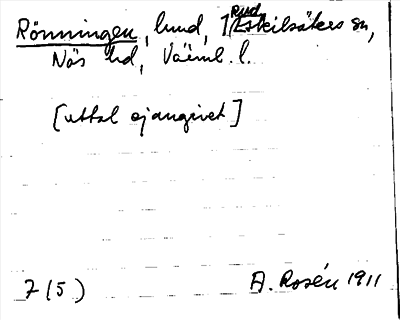 Rönningen, lund, Rud, Eskilsäters sn,
Näs hd, Värml. l.
[uttal ej angivet]
7 (5)
A. Rosén 1911